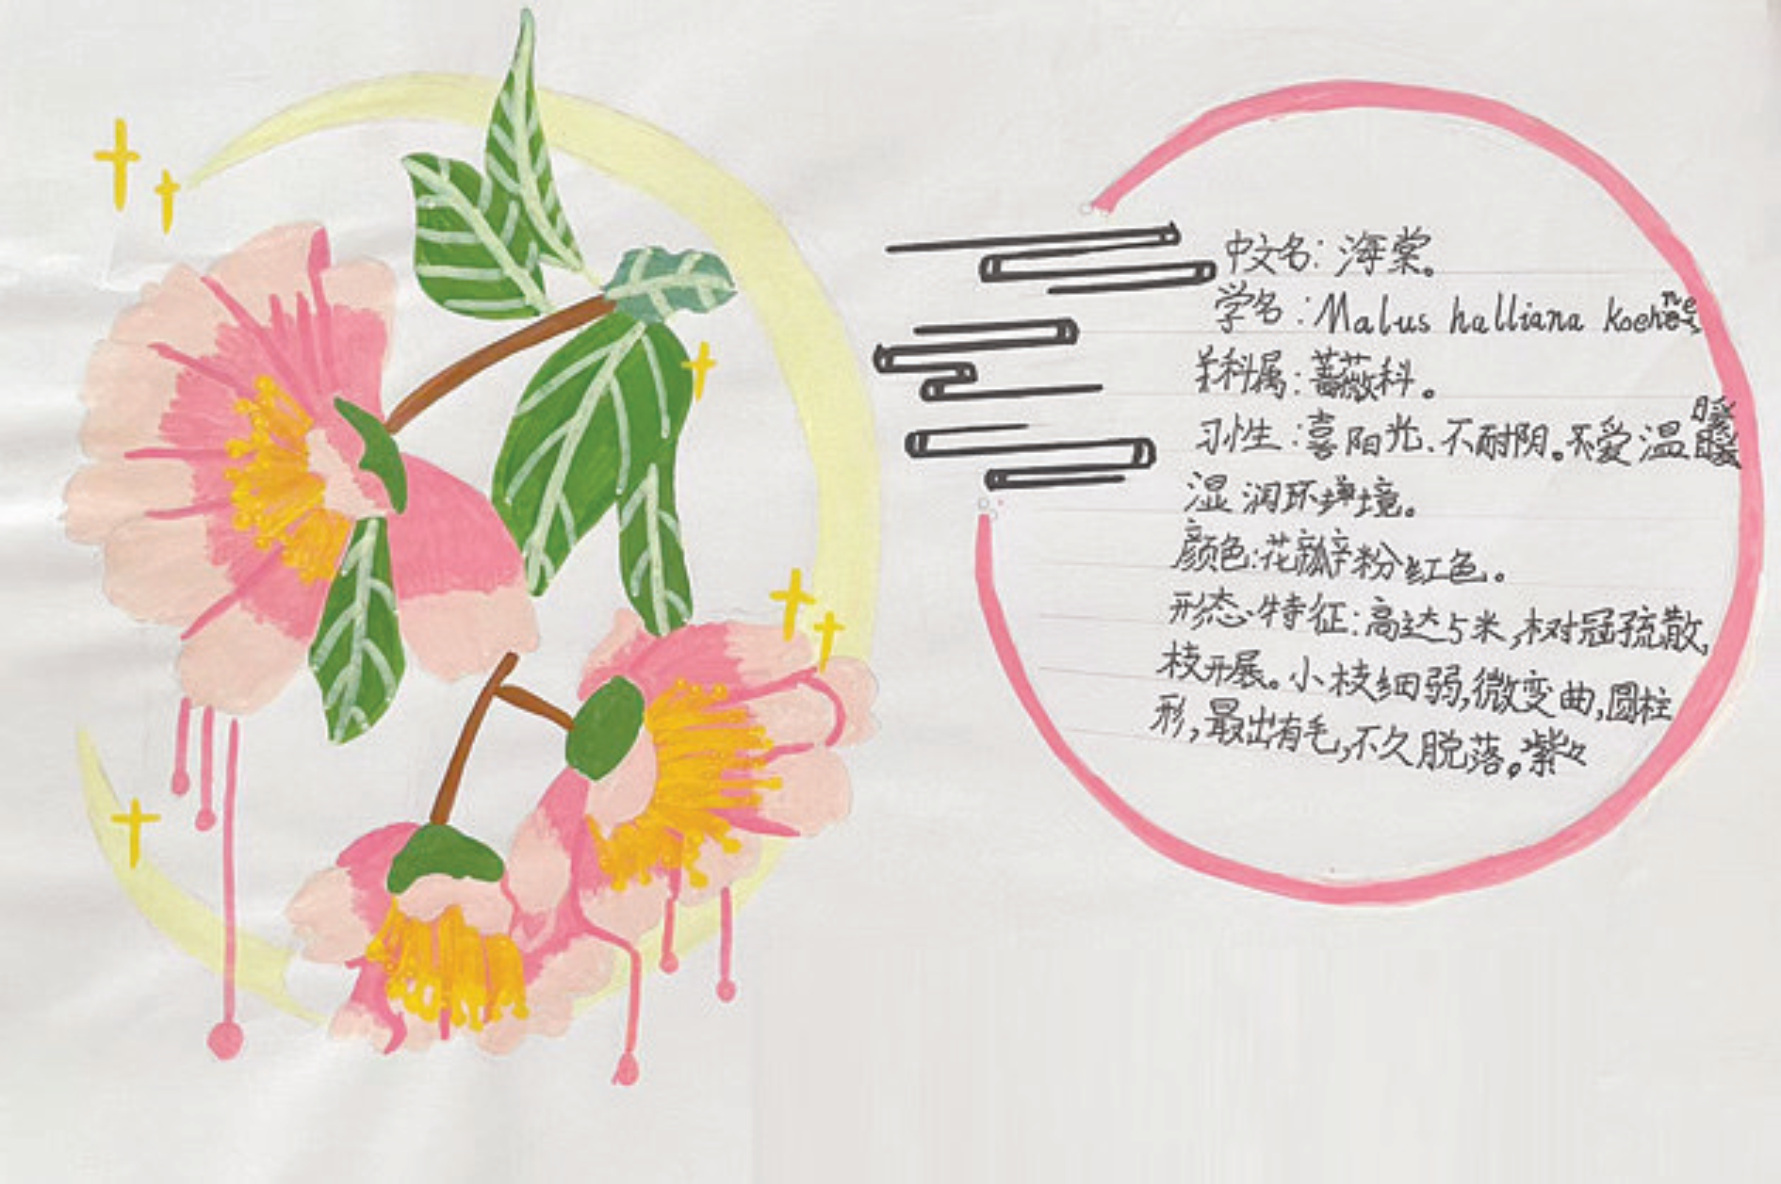 中文名：海棠。
学名：Malus halliana koehne
科属：蔷薇科。
习性：喜阳光.不耐阴。不爱温暖
湿润环境。
颜色：花瓣粉红色。
形态特征：高达5米，树冠疏散，
枝开展。小枝细弱，微变曲，圆柱
形，最出有毛，不久脱落。紫